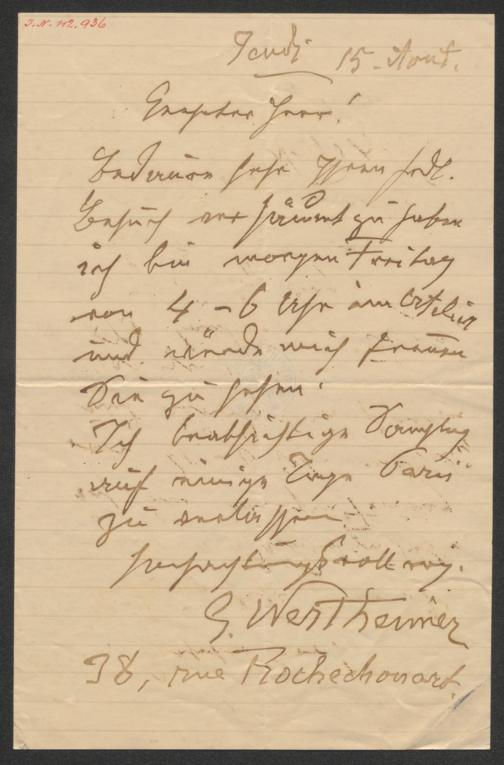 I.N. 112.936
Jeudi 15. Aout.
Geehrter Herr!
Bedaure sehr Ihren frdl.
Besuch versäumt zu haben
ich bin morgen Freitag
von 4 – 6 Uhr im Atelier
und würde mich freuen
Sie zu sehen.
Ich beabsichtige Samstag
auf einige Tage Paris
zu verlassen
Hochachtungsvoll
G. Wertheimer
38, rue Rochechouart.